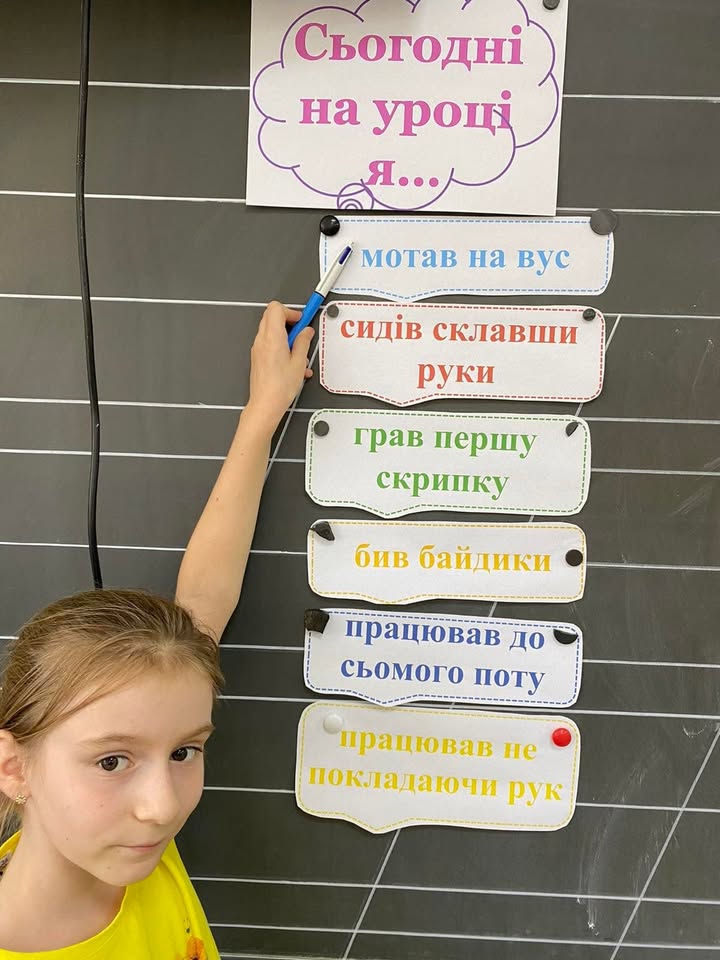 Сьогодні
на уроці
я...
мотав на вус
сидів склавши
руки
грав першу
скрипку
бив байдики
працював до
сьомого поту
працював не
покладаючи рук